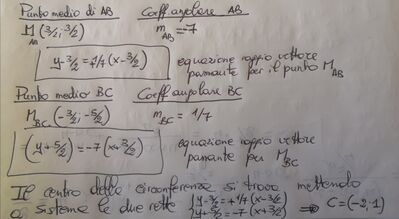 Punto medio di AB Coeff. angolare AB
M_AB (3/2; 3/2) m_AB = -7
y-3/2 = +1/7 (x-3/2) equazione raggio vettore
passante per il punto M_AB
Punto medio BC Coeff. angolare BC
M_BC (-3/2; -5/2) m_BC = 1/7
(y+5/2) = -7 (x+3/2) equazione raggio vettore
passante per M_BC
Il centro della circonferenza si trova mettendo
a sistema le due rette { y-3/2 = +1/7 (x-3/2) ⇒ C=(-2;1)
y+5/2 = -7 (x+3/2)